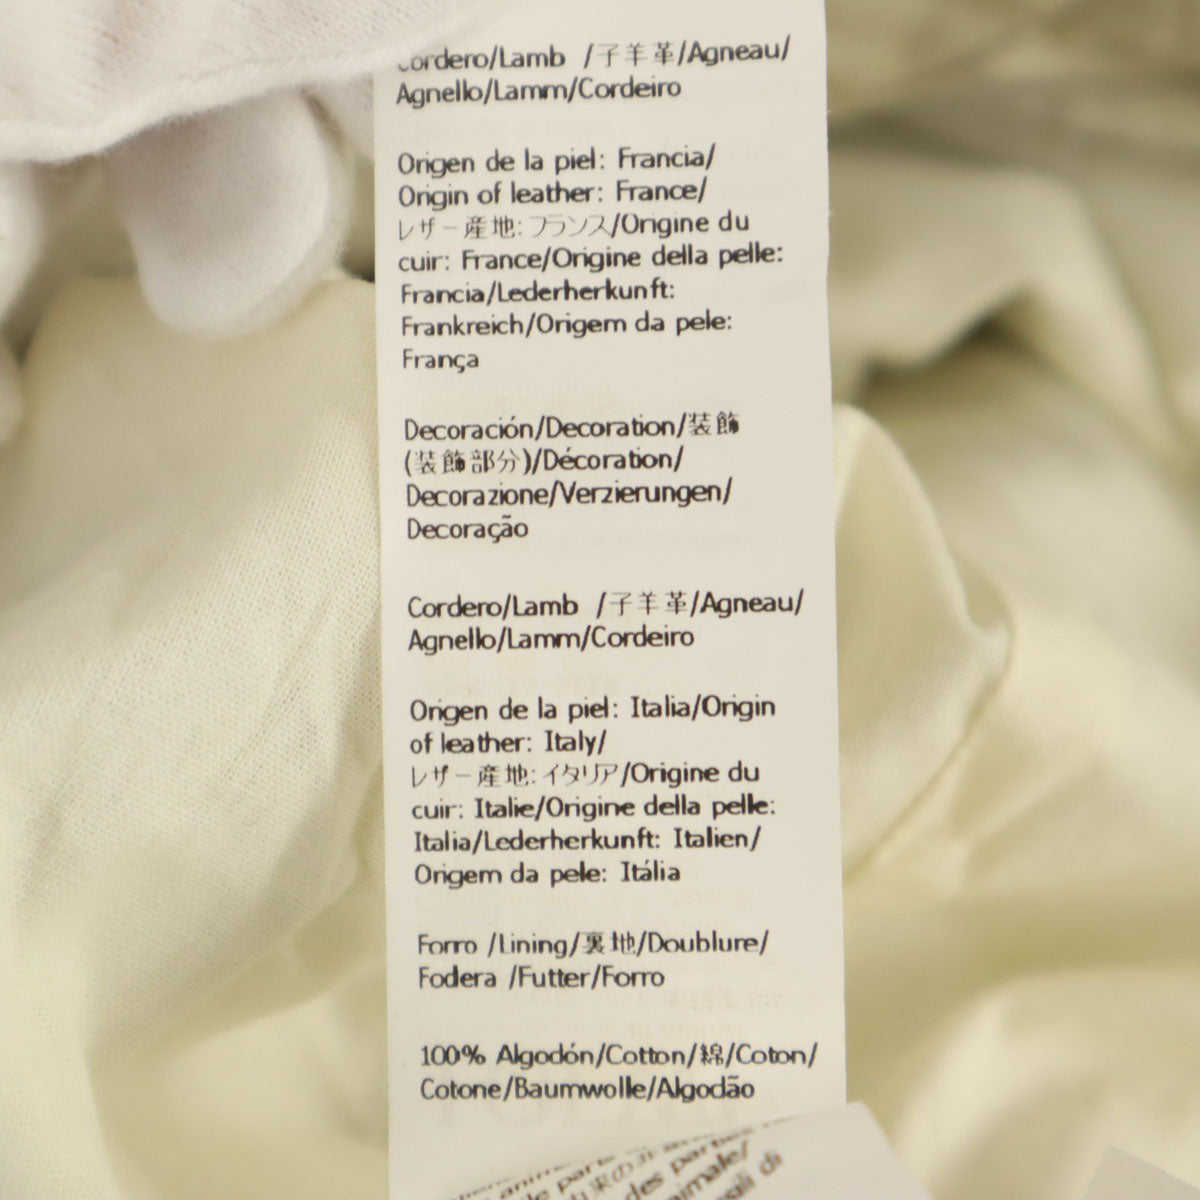 Cordero/Lamb /子羊革/Agneau/
Agnello/Lamm/Cordeiro
Origen de la piel: Francia/
Origin of leather: France/
レザー産地: フランス/Origine du
cuir: France/Origine della pelle:
Francia/Lederherkunft:
Frankreich/Origem da pele:
França
Decoración/Decoration/装飾
(装飾部分)/Décoration/
Decorazione/Verzierungen/
Decoração
Cordero/Lamb /子羊革/Agneau/
Agnello/Lamm/Cordeiro
Origen de la piel: Italia/Origin
of leather: Italy/
レザー産地: イタリア/Origine du
cuir: Italie/Origine della pelle:
Italia/Lederherkunft: Italien/
Origem da pele: Itália
Forro /Lining/裏地/Doublure/
Fodera /Futter/Forro
100% Algodón/Cotton/綿/Coton/
Cotone/Baumwolle/Algodão
des parties
di